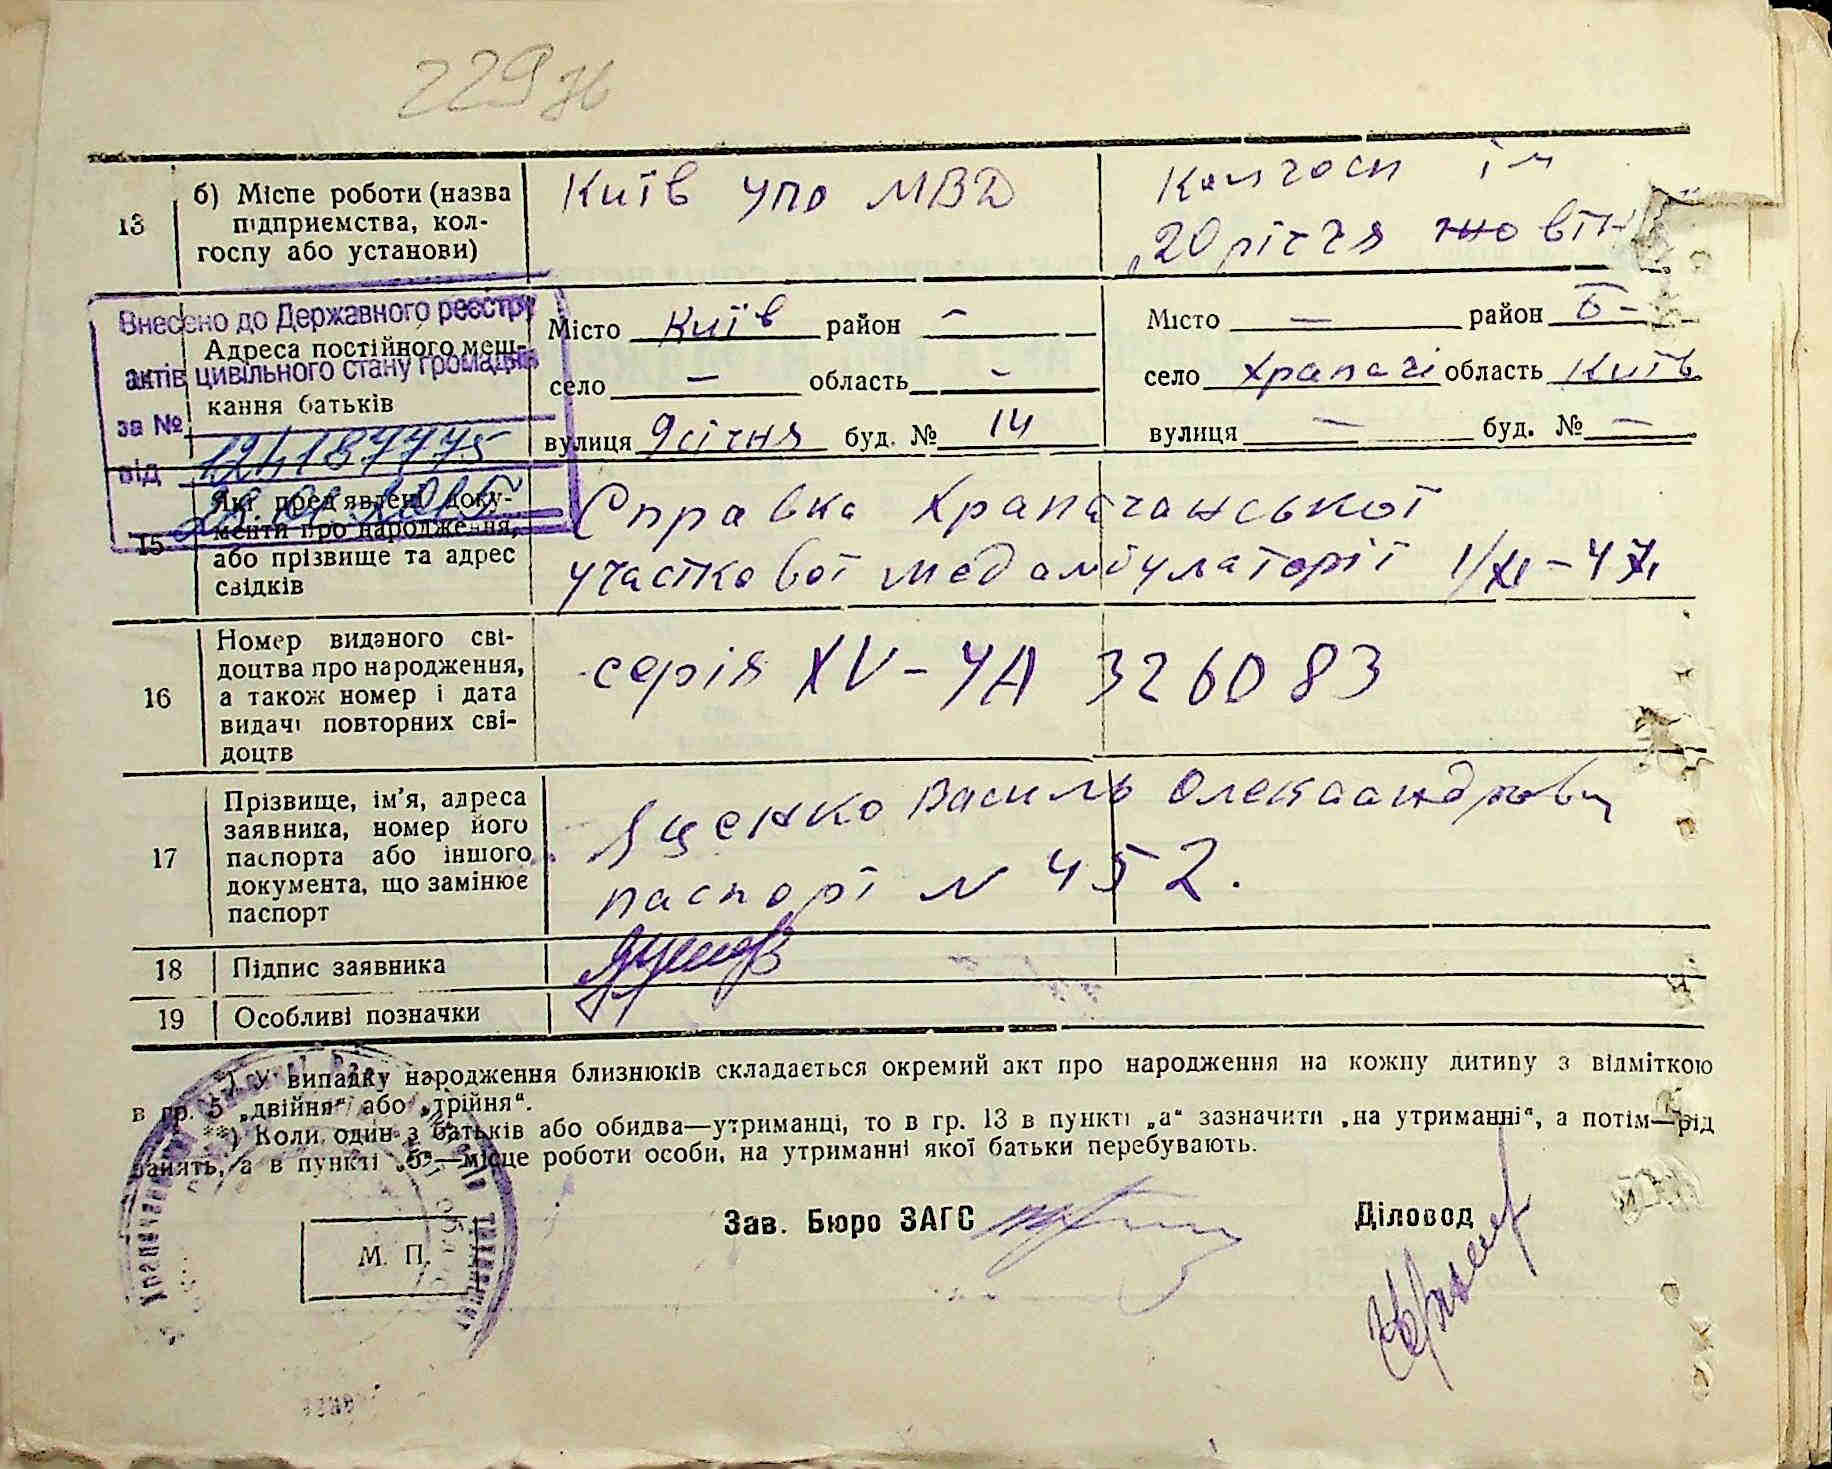 229
13
б) Місце роботи (назва
підприємства, кол-
госпу або установи)
Київ УПО МВД
Колгосп ім
„20 річчя жовтн
Внесено до Державного реєстру
актів цивільного стану громадян
за №
від
Адреса постійного меш-
кання батьків
Місто Київ район —
село — область —
вулиця 9 січня буд. № 14
Місто — район Б-
село Храпачі область Київ
вулиця — буд. № —
15
Які пред'явлені доку-
менти про народження,
або прізвище та адрес
свідків
Справка Храпачанської
участкової медамбулаторії 1/XI-47.
16
Номер виданого сві-
доцтва про народження,
а також номер і дата
видачі повторних сві-
доцтв
серія XV-УА 326083
17
Прізвище, ім'я, адреса
заявника, номер його
паспорта або іншого
документа, що замінює
паспорт
Яценко Василь Олександрович
паспорт N 452.
18
Підпис заявника
19
Особливі позначки
*) У випадку народження близнюків складається окремий акт про народження на кожну дитину з відміткою
в гр. 5 „двійня“ або „трійня“.
**) Коли один з батьків або обидва—утриманці, то в гр. 13 в пункті „а“ зазначити „на утриманні“, а потім—рід
занять, а в пункті „б“—місце роботи особи, на утриманні якої батьки перебувають.
Зав. Бюро ЗАГС
Діловод
М. П.